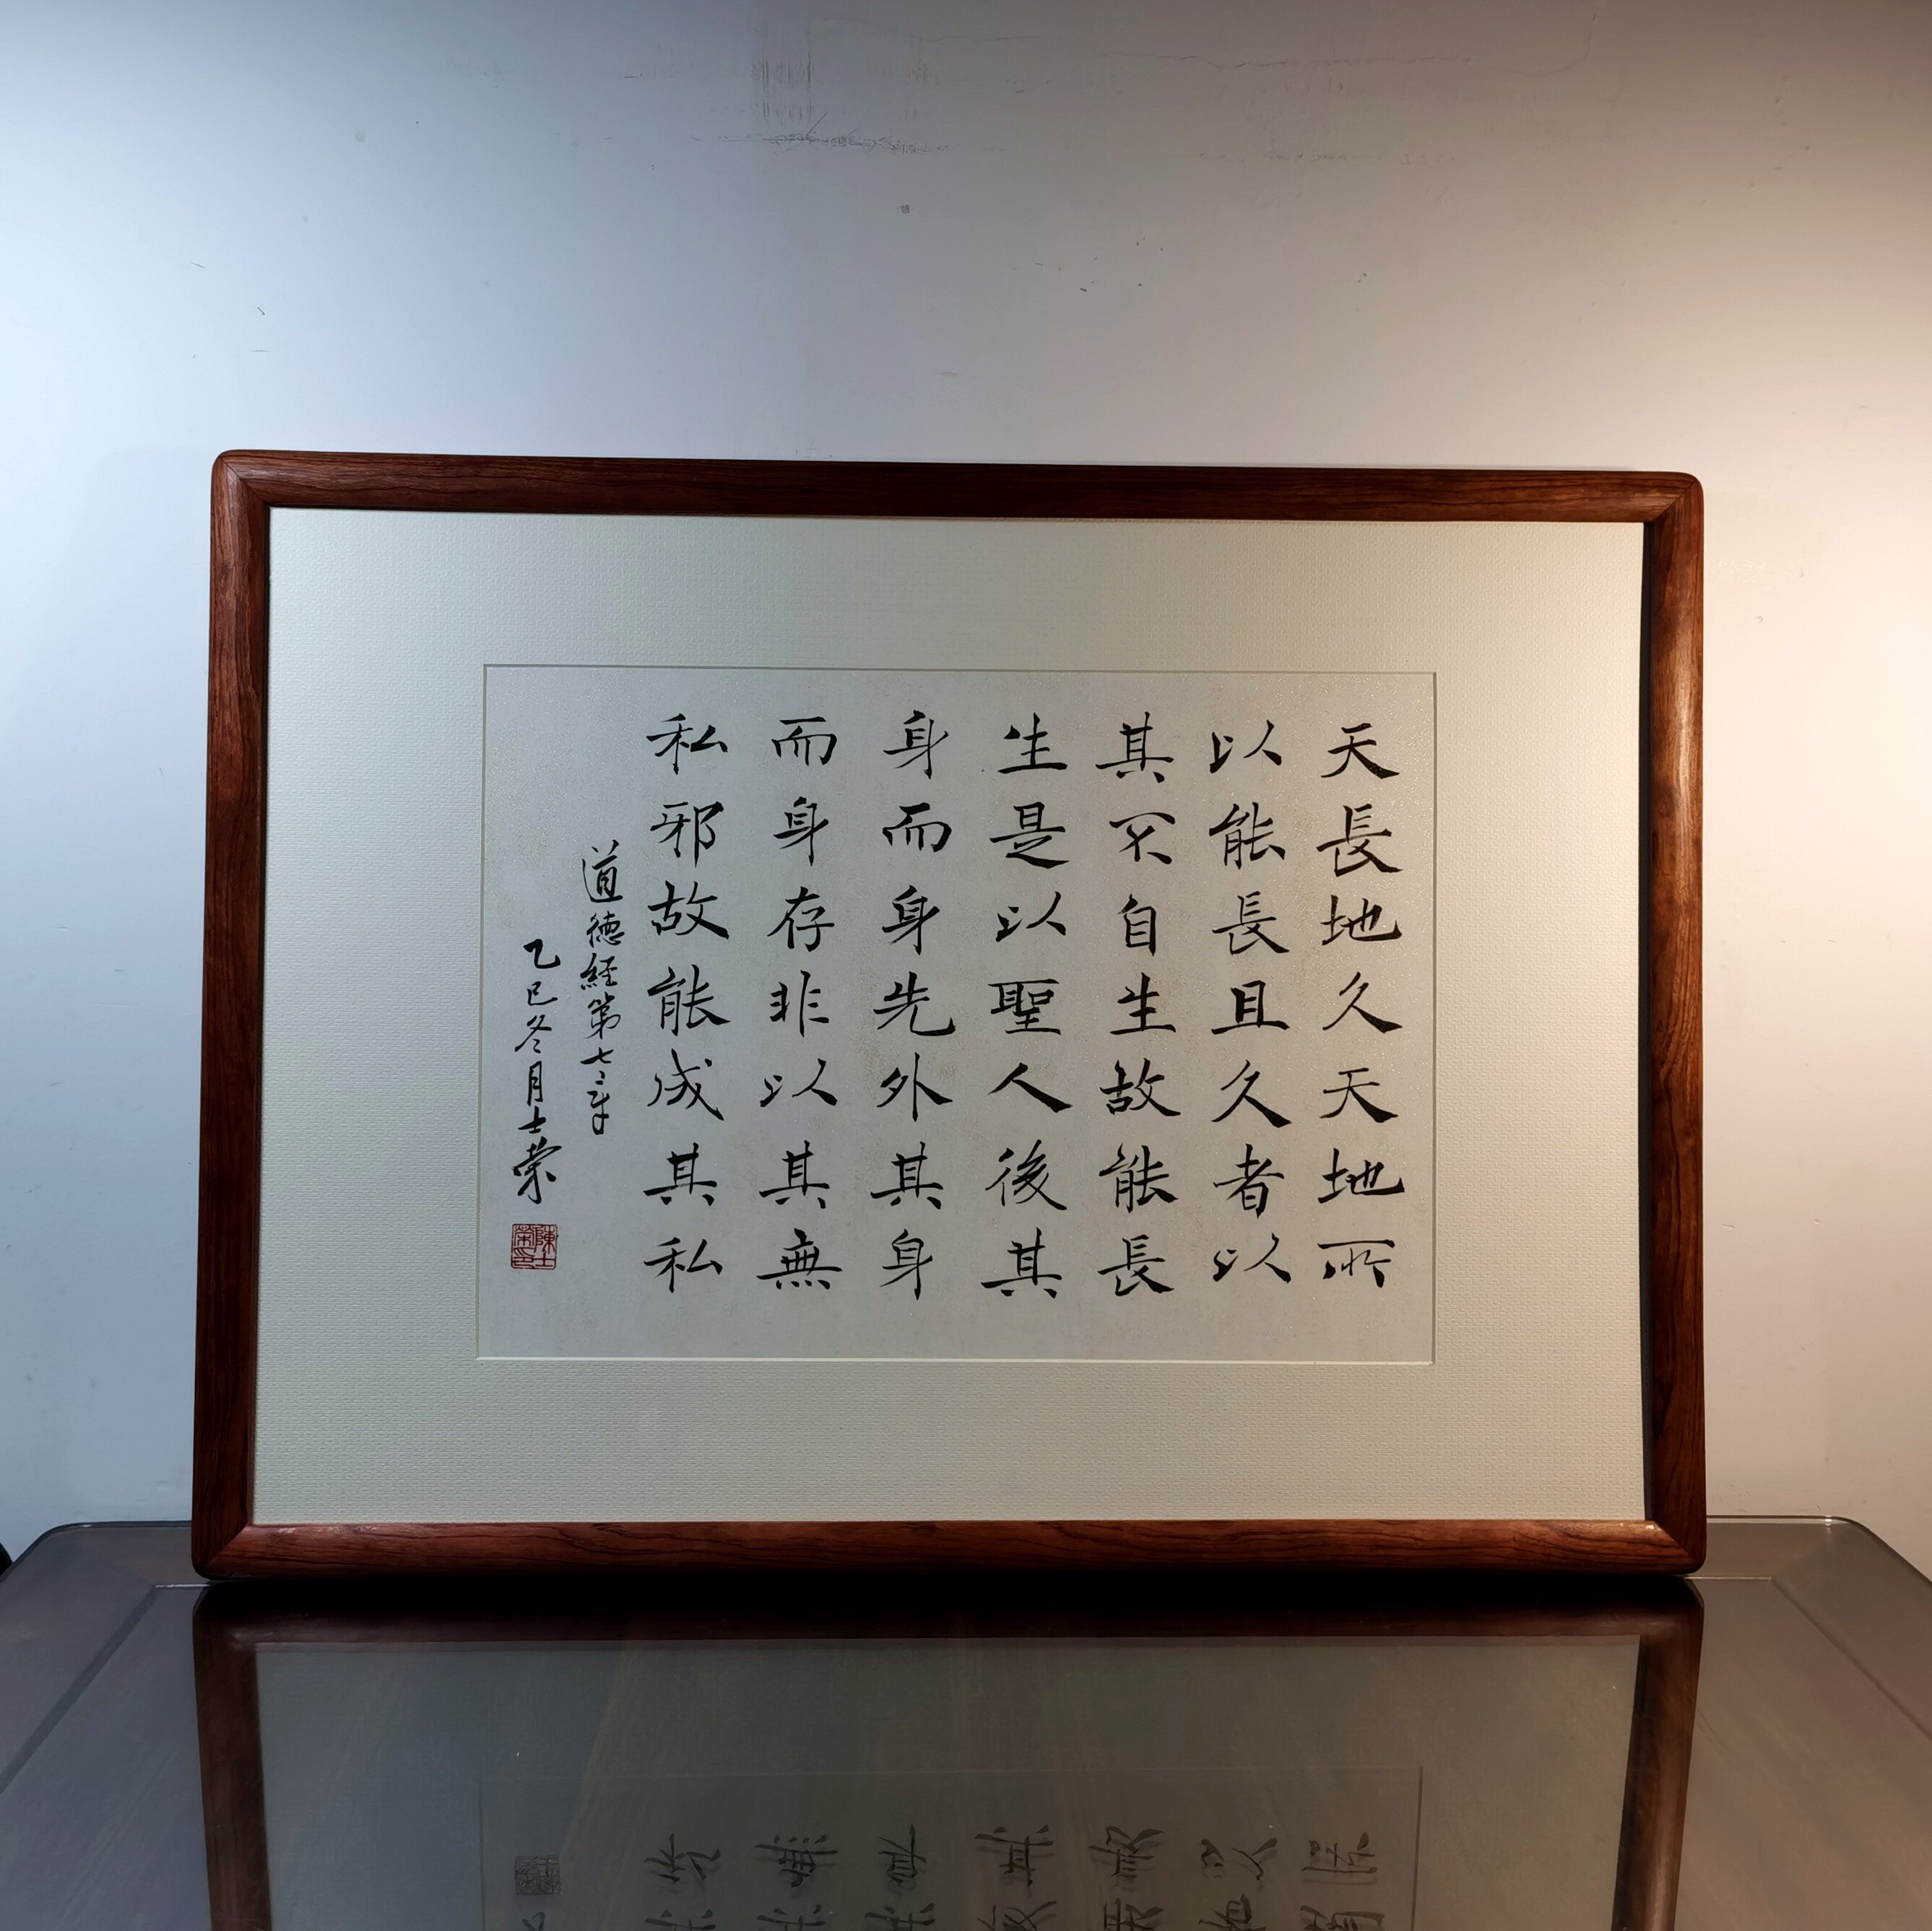 天長地久天地所
以能長且久者以
其不自生故能長
生是以聖人後其
身而身先外其身
而身存非以其無
私邪故能成其私
道德經第七章
乙巳冬月士榮
陳士榮印